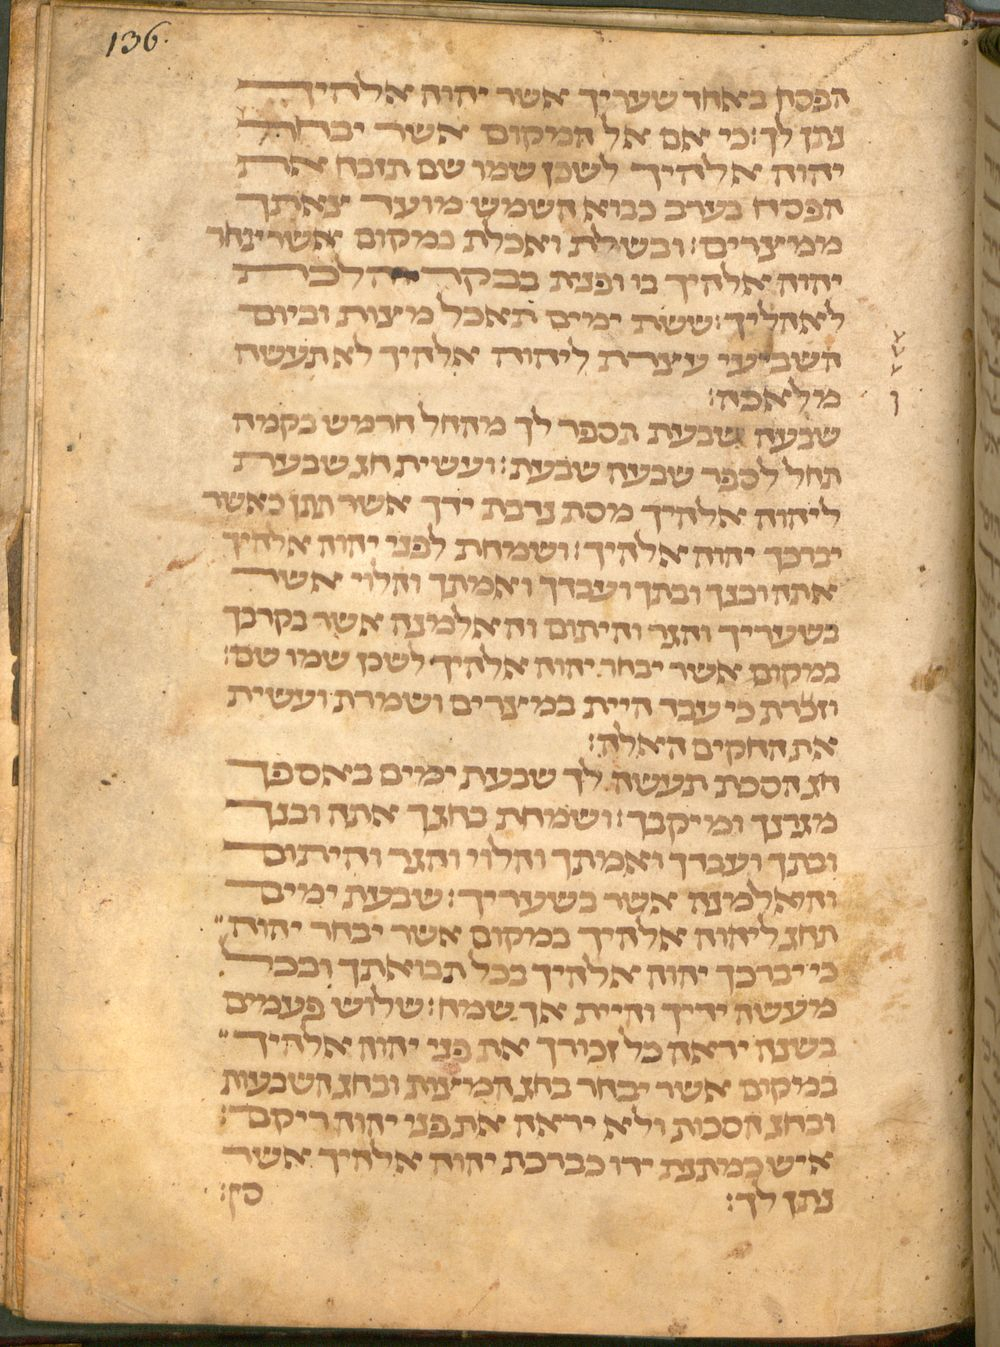 136.
הפסח באחד שעריך אשר יהוה אלהיך
נתן לך: כי אם אל המקום אשר יבחר
יהוה אלהיך לשכן שמו שם תזבח את
הפסח בערב כבוא השמש מועד צאתך
ממיצרים: ובשלת ואכלת במקום אשר יבחר
יהוה אלהיך בו ופנית בבקר והלכת
לאהליך: ששת ימים תאכל מיצות וביום
השביעי עיצרת ליהוה אלהיך לא תעשה
מלאכה:
שבעה שבעת תספר לך מהחל חרמש בקמה
תחל לספר שבעה שבעת: ועשית חג שבעת
ליהוה אלהיך מסת נדבת ידך אשר תתן כאשר
יברכך יהוה אלהיך: ושמחת לפני יהוה אלהיך
אתה ובנך ובתך ועבדך ואמתך והלוי אשר
בשעריך והגר והיתום והאלמנה אשר בקרבך
במקום אשר יבחר יהוה אלהיך לשכן שמו שם:
וזכרת כי עבד היית במיצרים ושמרת ועשית
את החקים האלה:
חג הסכת תעשה לך שבעת ימים באספך
מגרנך ומיקבך: ושמחת בחגך אתה ובנך
ובתך ועבדך ואמתך והלוי והגר והיתום
והאלמנה אשר בשעריך: שבעת ימים
תחג ליהוה אלהיך במקום אשר יבחר יהוה
כי יברכך יהוה אלהיך בכל תבואתך ובכל
מעשה ידיך והיית אך שמח: שלוש פעמים
בשנה יראה כל זכורך את פני יהוה אלהיך
במקום אשר יבחר בחג המיצות ובחג השבעות
ובחג הסכות ולא יראה את פני יהוה ריקם:
איש כמתנת ידו כברכת יהוה אלהיך אשר
נתן לך: